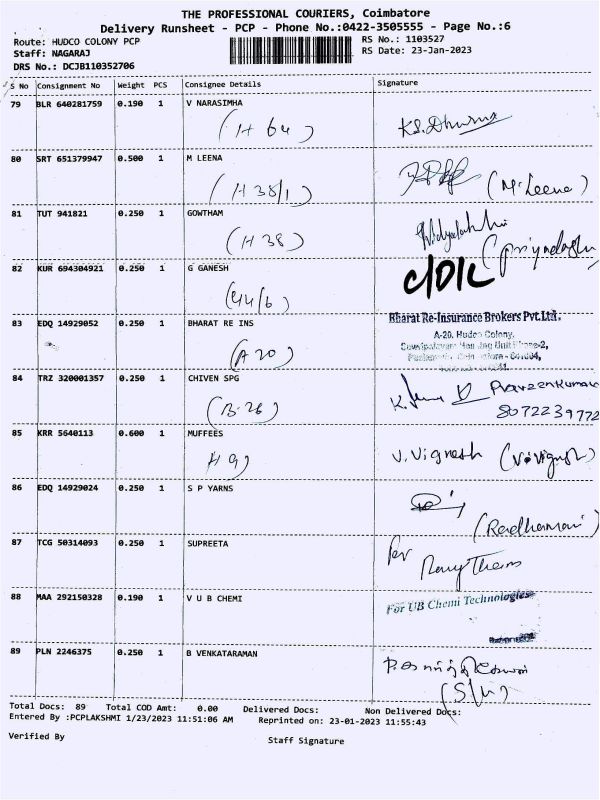 THE PROFESSIONAL COURIERS, Coimbatore
Delivery Runsheet - PCP - Phone No.:0422-3505555 - Page No.:6
Route: HUDCO COLONY PCP
Staff: NAGARAJ
DRS No.: DCJB110352706
RS No.: 1103527
RS Date: 23-Jan-2023
S No Consignment No Weight PCS Consignee Details Signature
79 BLR 640281759 0.190 1 V NARASIMHA
(H 64)
80 SRT 651379947 0.500 1 M LEENA
(H 38/1) (M. Leena)
81 TUT 941821 0.250 1 GOWTHAM
(H 38)
82 KUR 694304921 0.250 1 G GANESH
(44/6) C/D/L
83 EDQ 14929052 0.250 1 BHARAT RE INS
(A 20)
Bharat Re-Insurance Brokers Pvt.Ltd.
A-20, Hudco Colony,
84 TRZ 320001357 0.250 1 CHIVEN SPG
(B-26) Praveenkumar
8072239772
85 KRR 5640113 0.600 1 MUFFEES
H 9) V. Vignesh
86 EDQ 14929024 0.250 1 S P YARNS
(Radhamani)
87 TCG 50314093 0.250 1 SUPREETA
88 MAA 292150328 0.190 1 V U B CHEMI
For UB Chemi Technologies
89 PLN 2246375 0.250 1 B VENKATARAMAN
Total Docs: 89 Total COD Amt: 0.00 Delivered Docs: Non Delivered Docs:
Entered By :PCPLAKSHMI 1/23/2023 11:51:06 AM Reprinted on: 23-01-2023 11:55:43
Verified By
Staff Signature